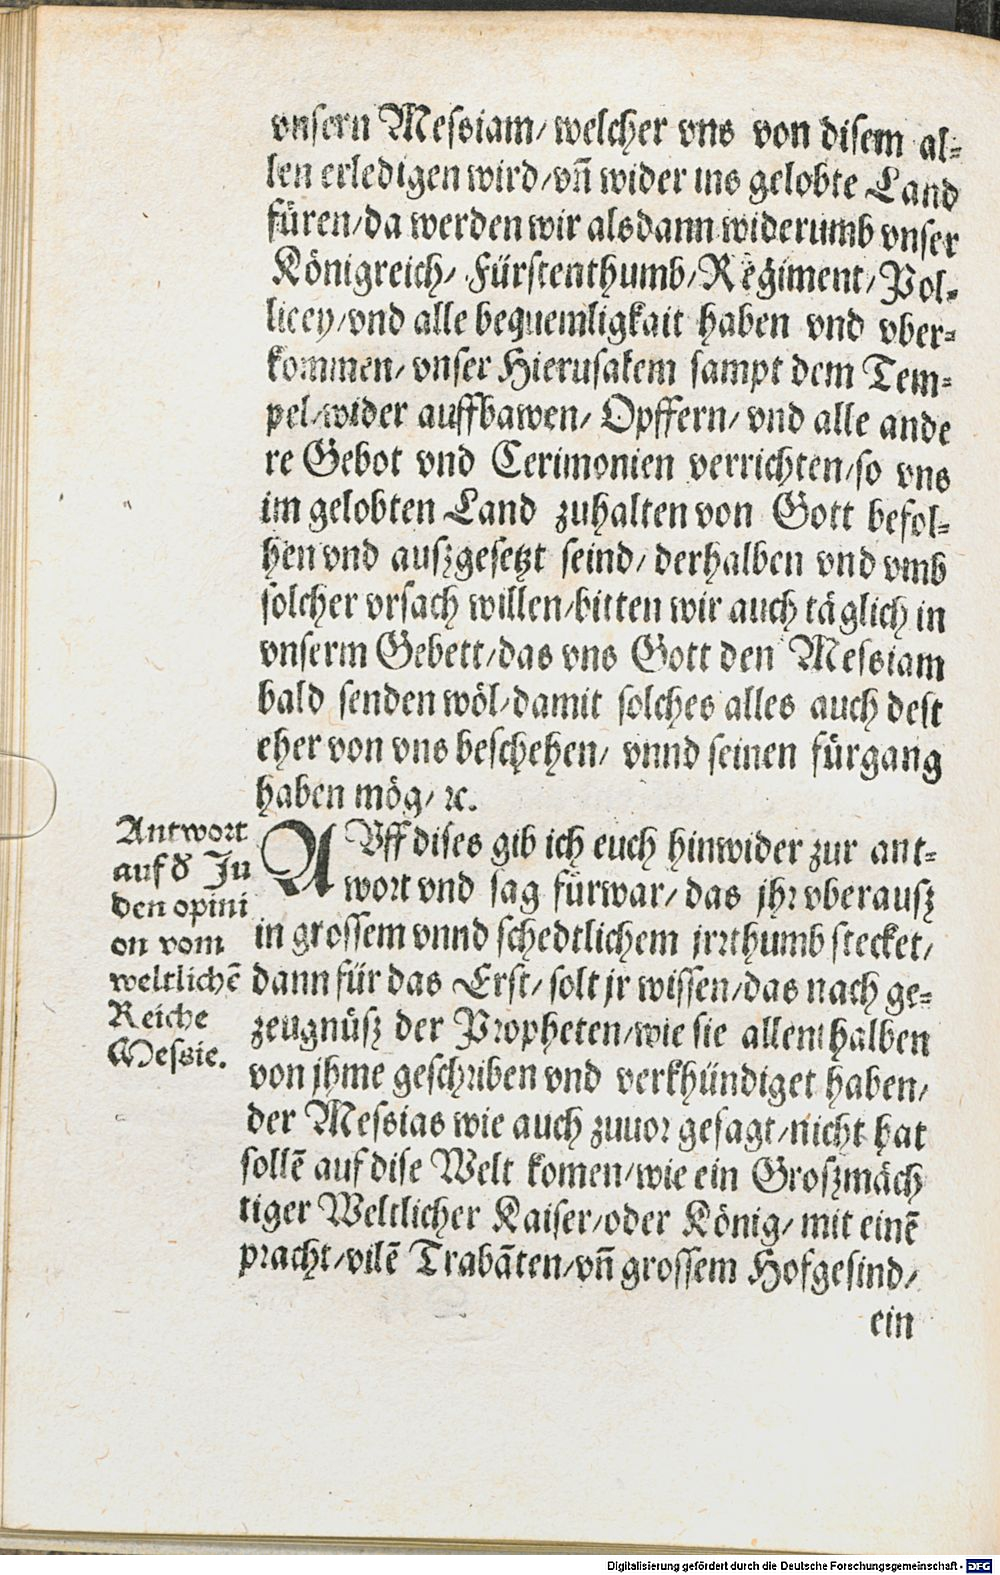 vnsern Messiam/ welcher vns von disem al-
len erledigen wird/vn̄ wider ins gelobte Land
füren/da werden wir alsdann widerumb vnser
Königreich/ Fürstenthumb/ Regiment/ Pol-
licey/vnd alle bequemligkait haben vnd vber-
kommen/ vnser Hierusalem sampt dem Tem-
pel/wider auffbawen/ Opffern/ vnd alle ande
re Gebot vnd Cerimonien verrichten/so vns
im gelobten Land zuhalten von Gott befol-
hen vnd auszgesetzt seind/ derhalben vnd vmb
solcher vrsach willen/bitten wir auch täglich in
vnserm Gebett/das vns Gott den Messiam
bald senden wöl/damit solches alles auch dest
eher von vns beschehen/ vnnd seinen fürgang
haben mög/ ꝛc.
Antwort
auf d̓ Ju
den opini
on vom
weltlichē
Reiche
Messie.
AVff dises gib ich euch hinwider zur ant-
wort vnd sag fürwar/ das jhr vberausz
in grossem vnnd schedtlichem jrrthumb stecket/
dann für das Erst/ solt jr wissen/das nach ge-
zeugnüsz der Propheten/wie sie allenthalben
von jhme geschriben vnd verkhündiget haben/
der Messias wie auch zuuor gesagt/nicht hat
sollē auf dise Welt komen/wie ein Groszmäch
tiger Weltlicher Kaiser/oder König/ mit einē
pracht/vilē Trabāten/vn̄ grossem Hofgesind/
ein
Digitalisierung gefördert durch die Deutsche Forschungsgemeinschaft - DFG